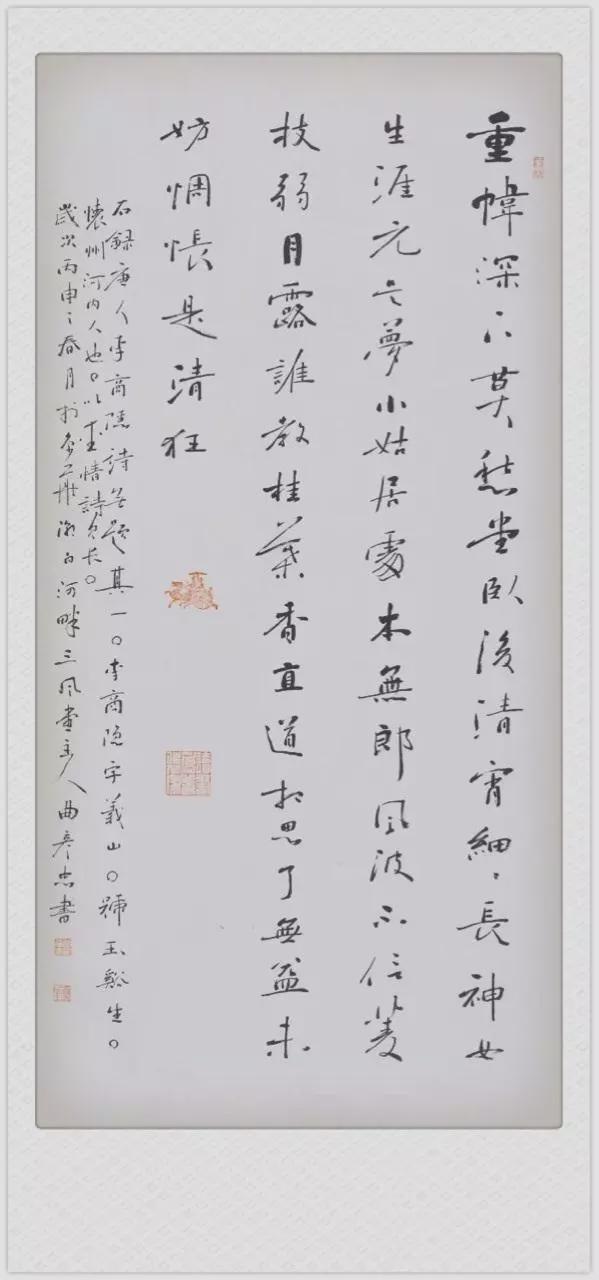 重幃深下莫愁堂臥後清宵細〻長神女
生涯元是夢小姑居處本無郎風波不信菱
枝弱月露誰教桂葉香直道相思了無益未
妨惆悵是清狂
右録唐人李商隱詩無題其一。李商隐字義山。號玉谿生。
懷州河内人也。以情詩見长。
歲次丙申之春月於京華潮白河畔三風堂主人曲彥忠書